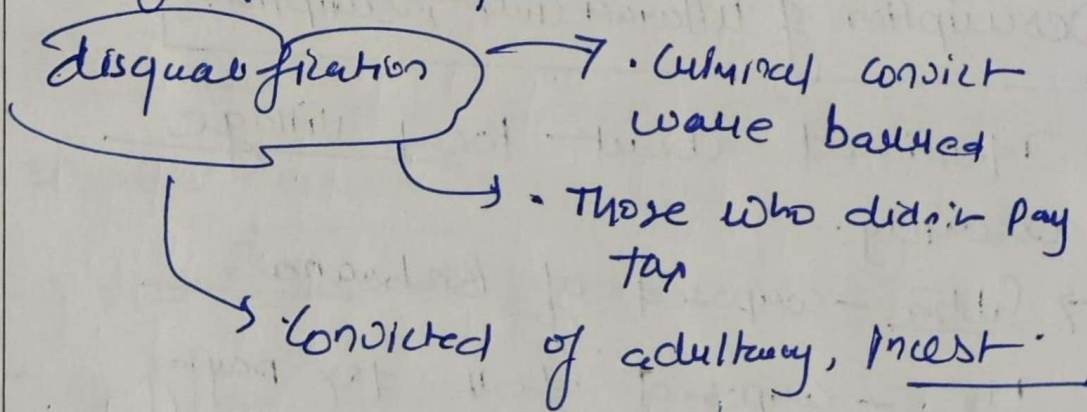 disqualification
• Criminal convict
were barred
• Those who didn't pay
tax
• Convicted of adultery, incest.